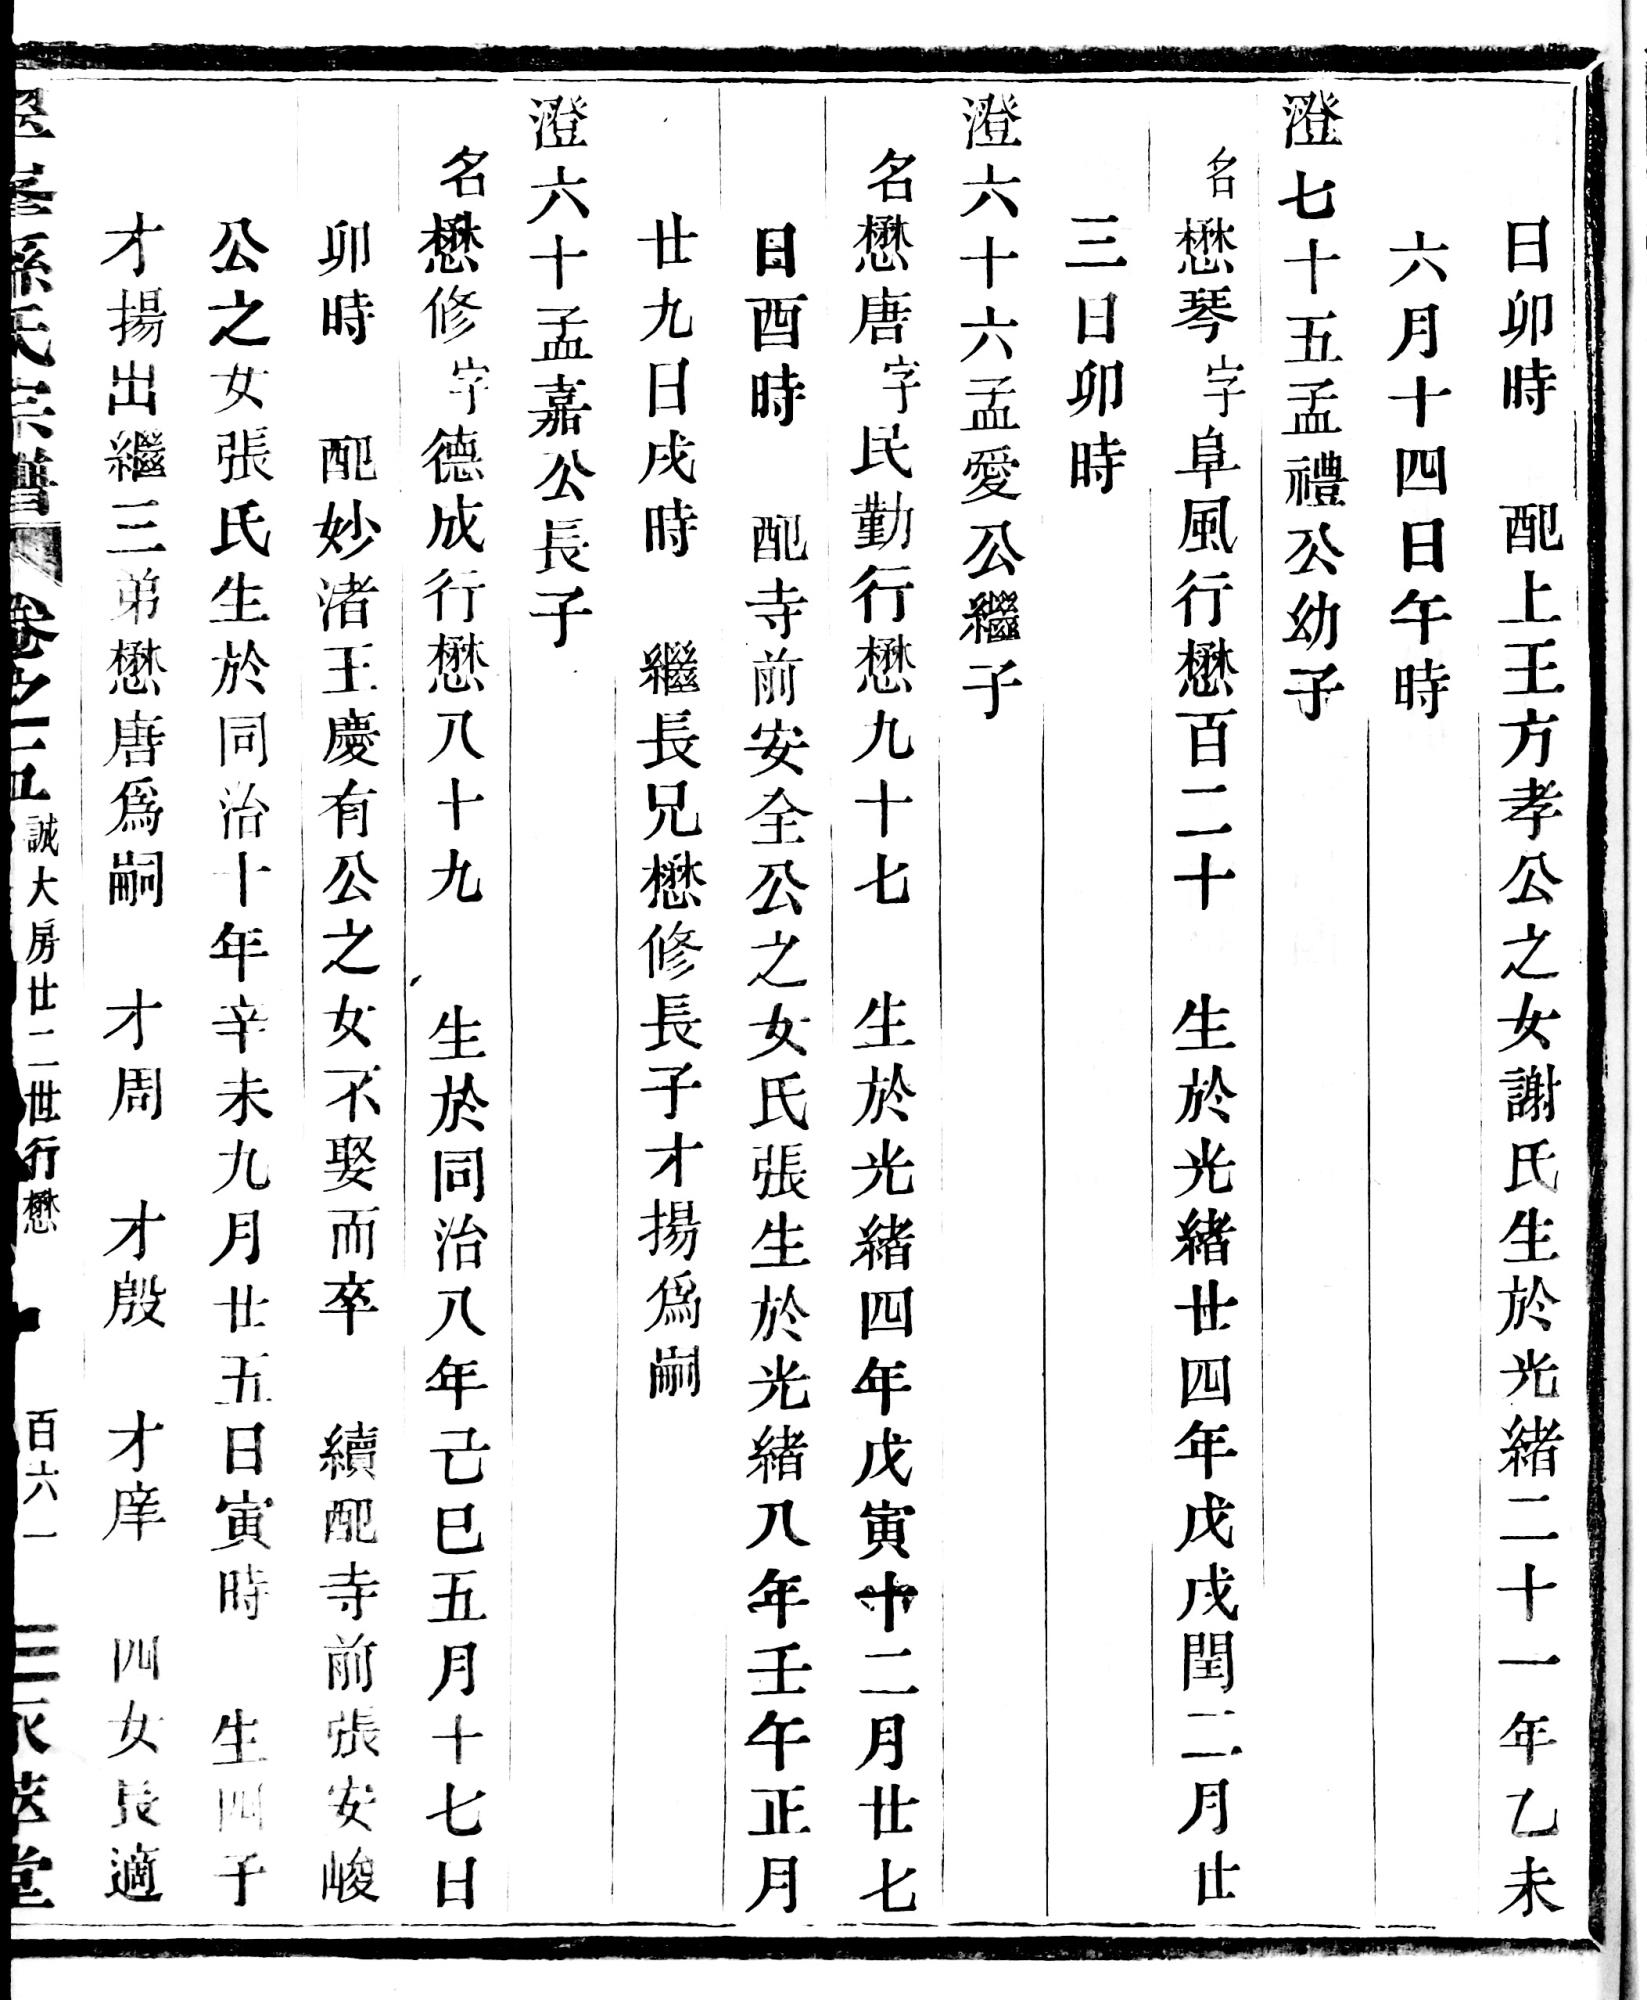 日卯時　配上王方孝公之女謝氏生於光緒二十一年乙未
六月十四日午時
澄七十五孟禮公幼子
名懋琴字阜風行懋百二十　生於光緒廿四年戊戌閏二月廿
三日卯時
澄六十六孟愛公繼子
名懋唐字民勤行懋九十七　生於光緒四年戊寅十二月廿七
日酉時　配寺前安全公之女氏張生於光緒八年壬午正月
廿九日戌時　繼長兄懋修長子才揚爲嗣
澄六十孟嘉公長子
名懋修字德成行懋八十九　生於同治八年己巳五月十七日
卯時　配妙渚王慶有公之女不娶而卒　續配寺前張安峻
公之女張氏生於同治十年辛未九月廿五日寅時　生四子
才揚出繼三弟懋唐爲嗣　才周　才殷　才庠　四女長適
孫氏宗譜　卷之　誠大房廿二世行懋　百六一　萃堂